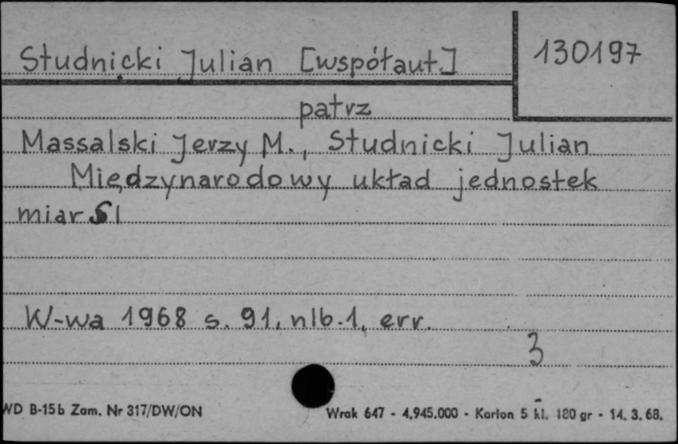 Studnicki Julian [współaut.]
130197
patrz
Massalski Jerzy M., Studnicki Julian
Międzynarodowy układ jednostek
miar SI
W-wa 1968 s. 91, nlb. 1, err.
3
WD B-15b Zam. Nr 317/DW/ON
Wrak 647 - 4.945.000 - Karton 5 kl. 180 gr - 14. 3. 68.